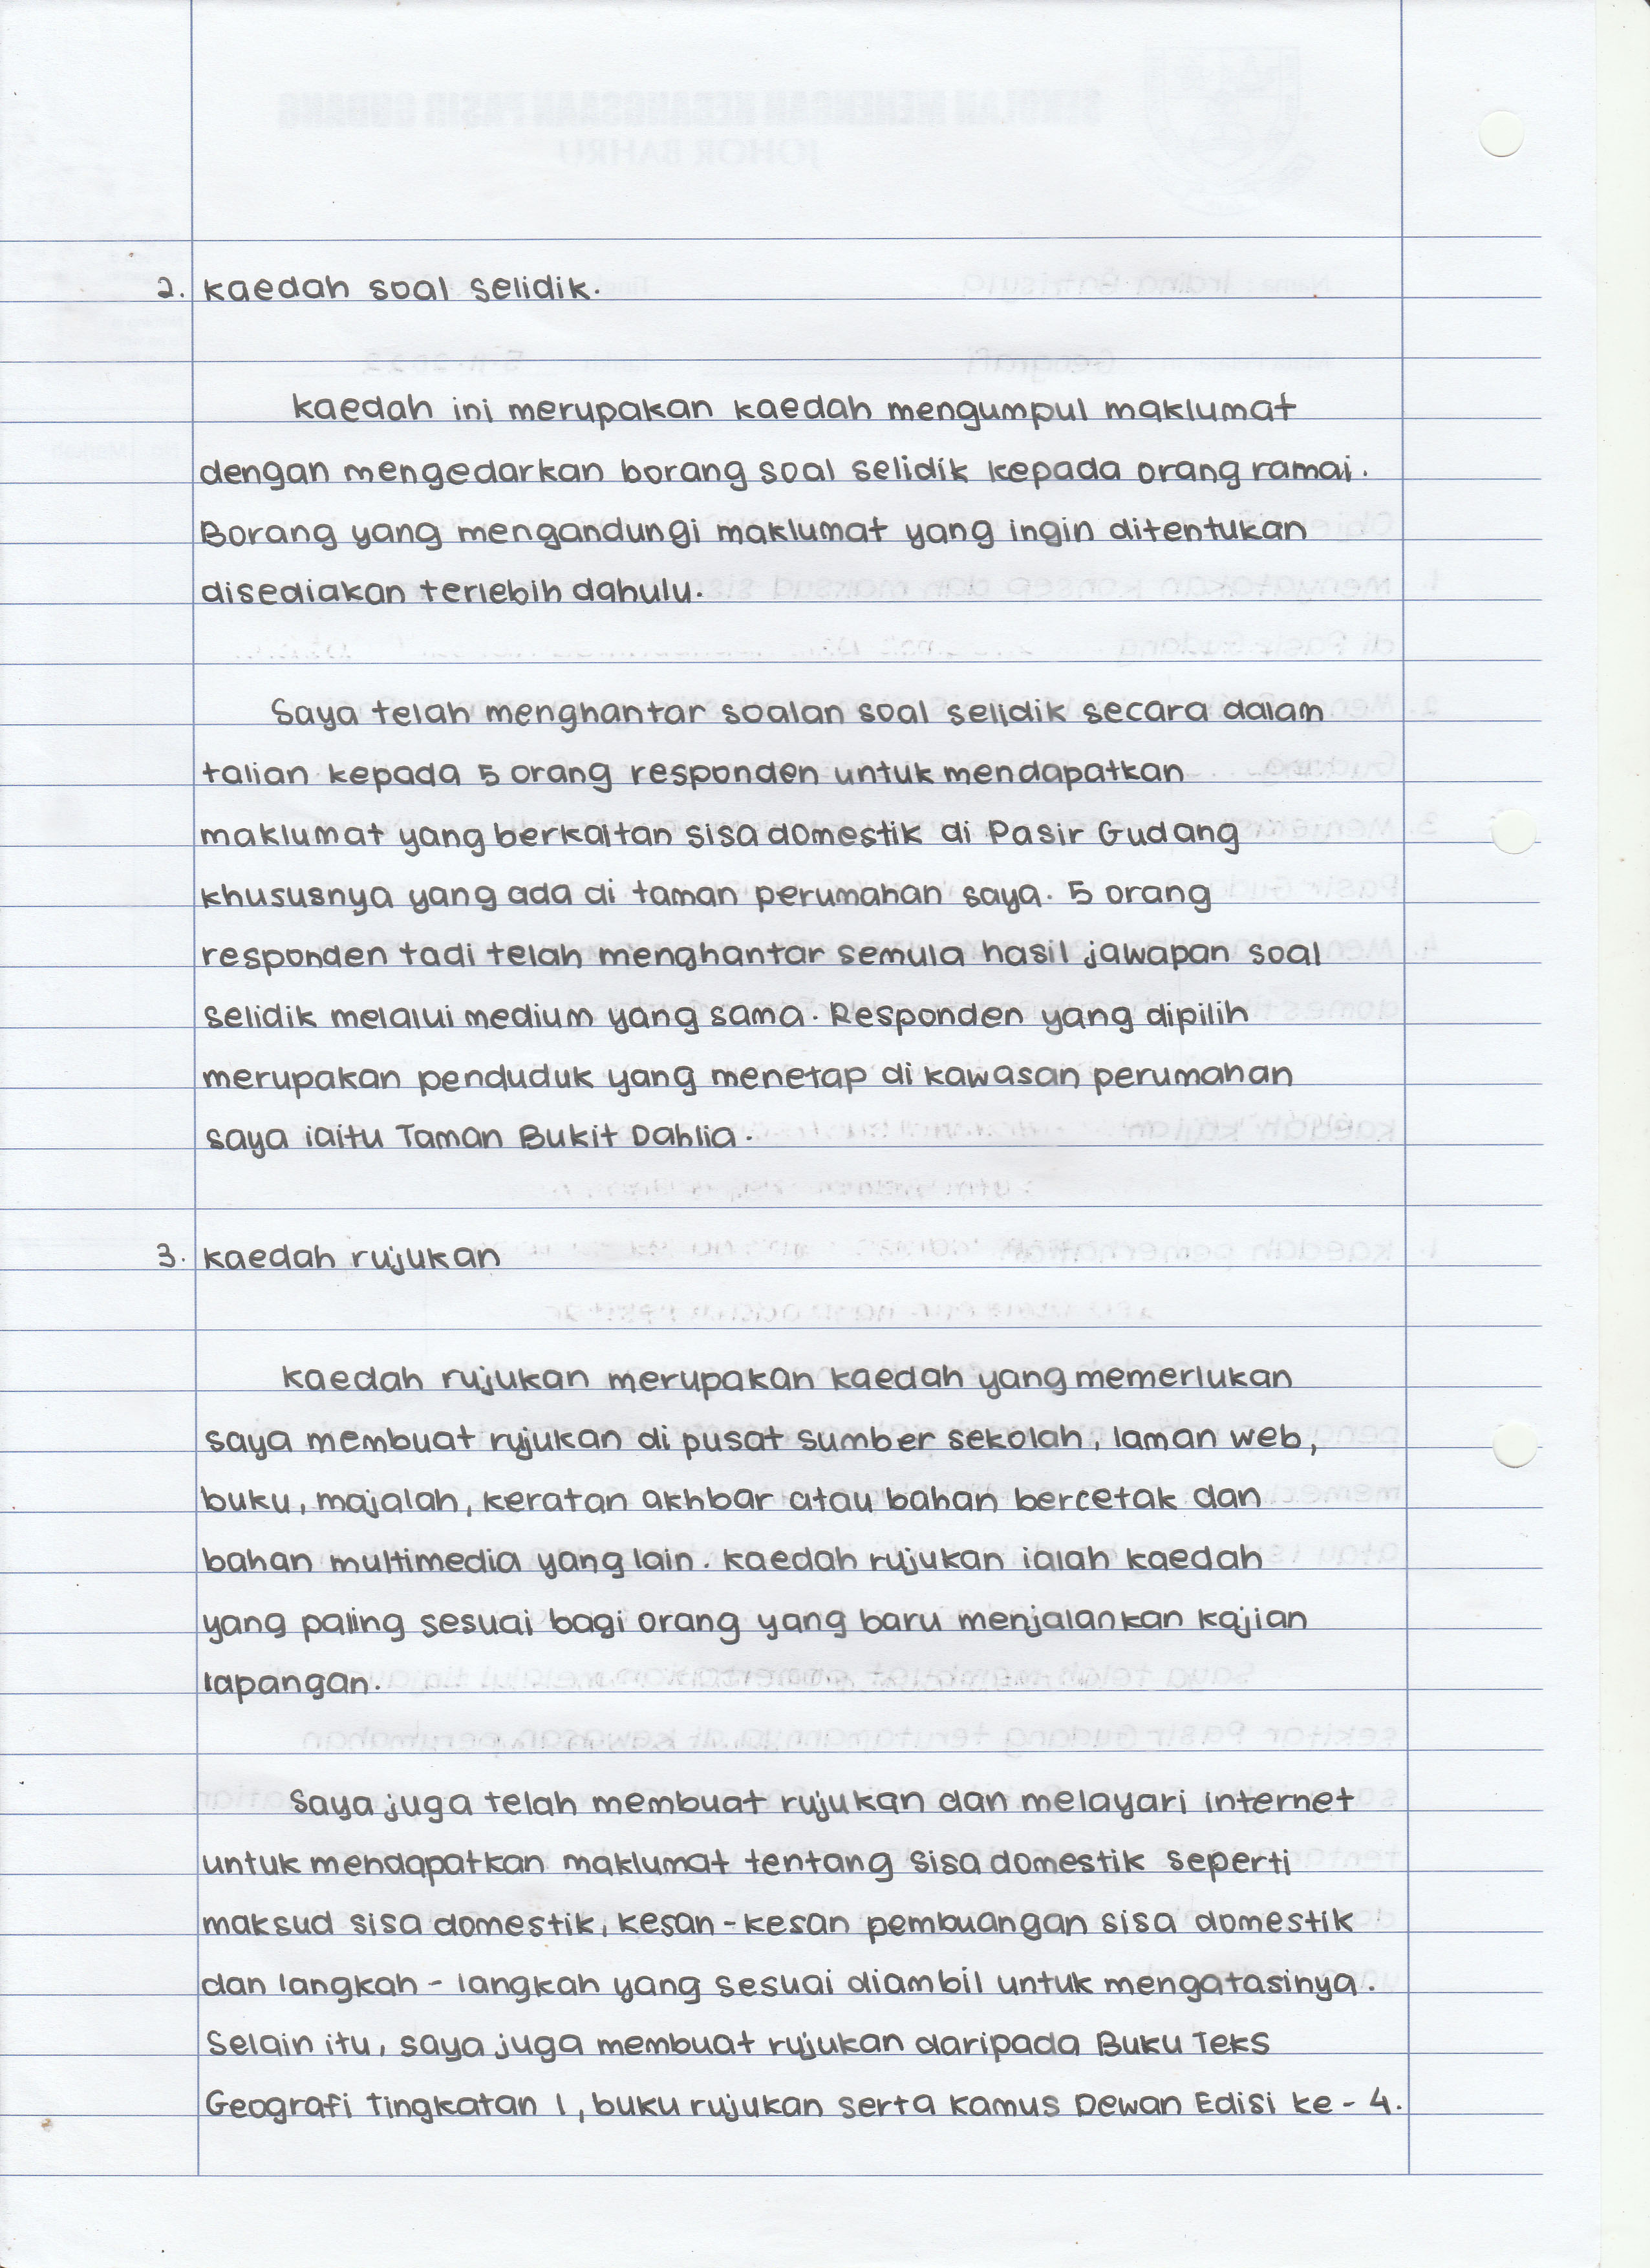 2. Kaedah soal selidik.
Kaedah ini merupakan kaedah mengumpul maklumat
dengan mengedarkan borang soal selidik kepada orang ramai.
Borang yang mengandungi maklumat yang ingin ditentukan
disediakan terlebih dahulu.
Saya telah menghantar soalan soal selidik secara dalam
talian kepada 5 orang responden untuk mendapatkan
maklumat yang berkaitan sisa domestik di Pasir Gudang
khususnya yang ada di taman perumahan saya. 5 orang
responden tadi telah menghantar semula hasil jawapan soal
selidik melalui medium yang sama. Responden yang dipilih
merupakan penduduk yang menetap di kawasan perumahan
saya iaitu Taman Bukit Dahlia.
3. Kaedah rujukan
Kaedah rujukan merupakan kaedah yang memerlukan
saya membuat rujukan di pusat sumber sekolah, laman web,
buku, majalah, keratan akhbar atau bahan bercetak dan
bahan multimedia yang lain. Kaedah rujukan ialah kaedah
yang paling sesuai bagi orang yang baru menjalankan kajian
lapangan.
Saya juga telah membuat rujukan dan melayari internet
untuk mendapatkan maklumat tentang sisa domestik seperti
maksud sisa domestik, kesan-kesan pembuangan sisa domestik
dan langkah-langkah yang sesuai diambil untuk mengatasinya.
Selain itu, saya juga membuat rujukan daripada Buku Teks
Geografi tingkatan 1, buku rujukan serta Kamus Dewan Edisi ke-4.